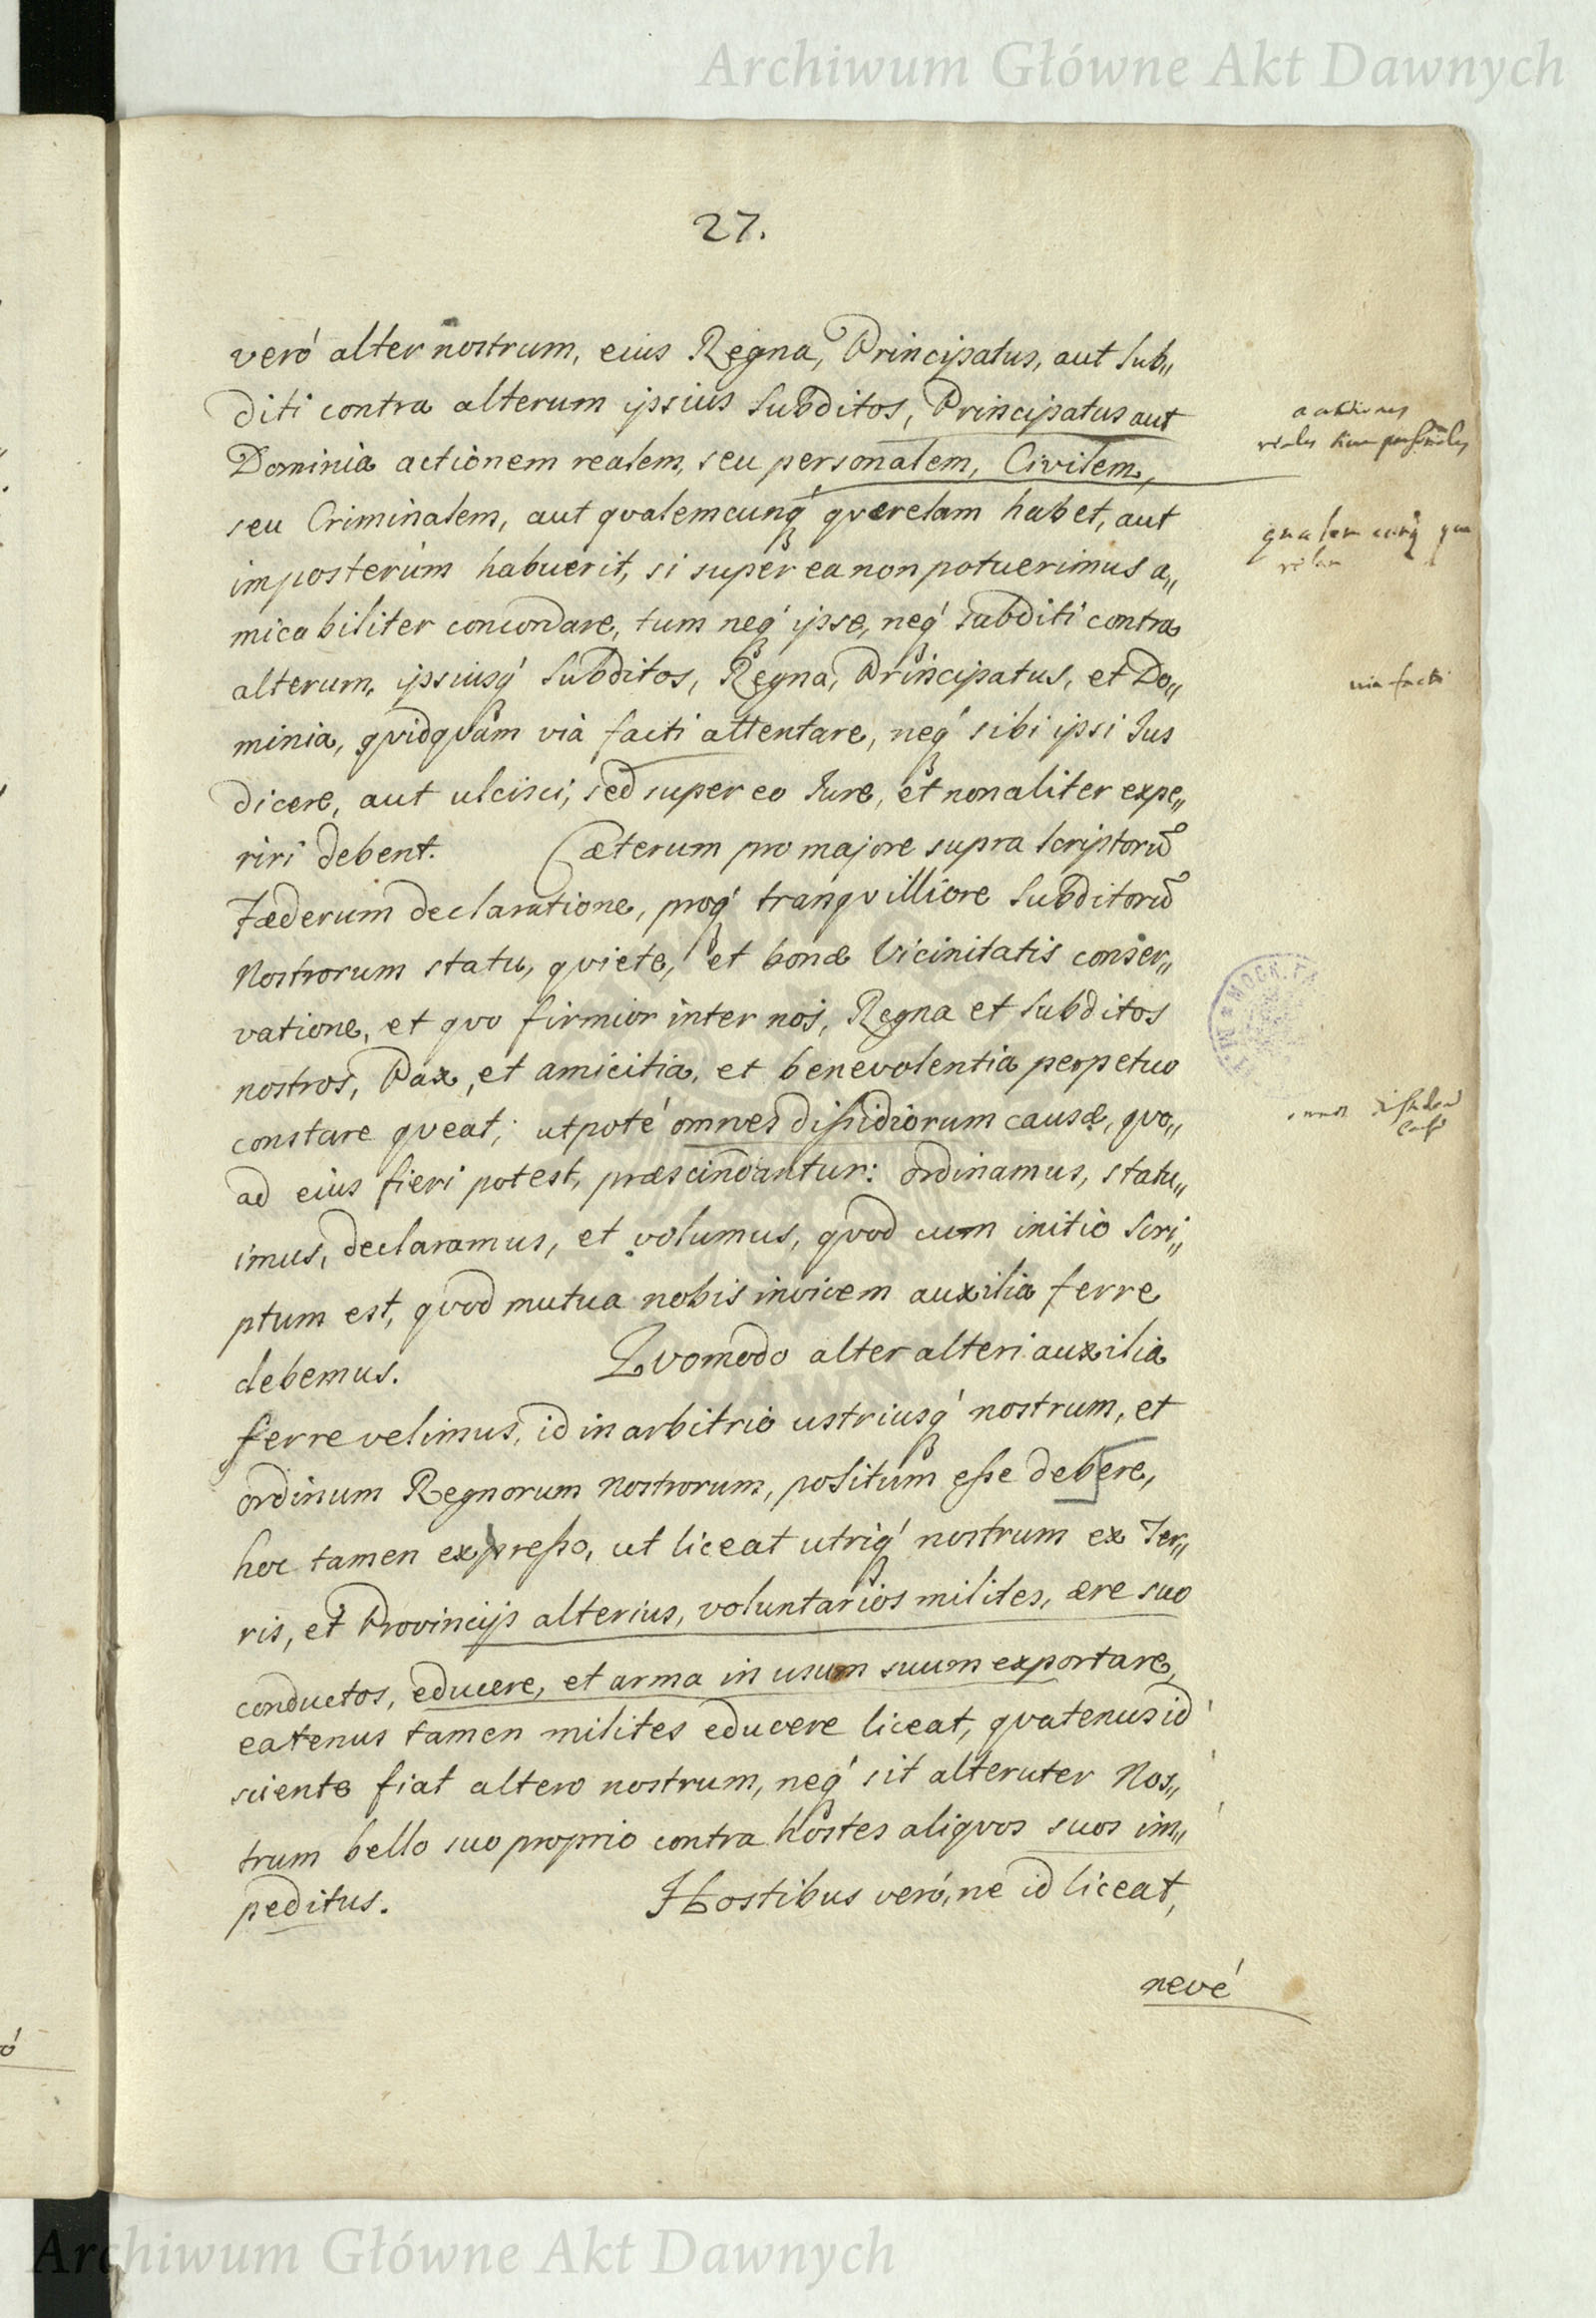 Archiwum Główne Akt Dawnych
27.
veró alter nostrum, eius Regna, Principatus, aut Sub„
diti contra alterum ipsius Subditos, Principatus aut
Dominia actionem realem, seu personalem, Civilem,
seu Criminalem, aut qvalemcunq́ qværelam habet, aut
imposterum habuerit, si super ea non potuerimus a„
micabiliter concordare, tum neq́ ipse, neq́ subditi contra
alterum, ipsiusq́ Subditos, Regna, Principatus, et Do„
minia, qvidqvam via facti attentare, neq́ sibi ipsi Jus
dicere, aut ulcisci, sed super eo Jure, et non aliter expe„
riri debent. Cæterum pro majore supra Scriptorũ
Fæderum declaratione, proq́ tranqvilliore Subditorũ
Nostrorum statu, qviete, et bonæ Vicinitatis conser„
vatione, et qvo firmior inter nos, Regna et Subditos
nostros, Pax, et amicitia, et benevolentia perpetuo
constare qveat; utpoté omnes dissidiorum causæ, qvo„
ad eius fieri potest, præscindantur: ordinamus, statu„
imus, declaramus, et volumus, qvod cum initio Scri„
ptum est, qvod mutua nobis invicem auxilia ferre
debemus. Qvomodo alter alteri auxilia
ferre velimus, id in arbitrio ustriusq́ nostrum, et
ordinum Regnorum Nostrorum, positum esse debere,
hoc tamen expresso, ut liceat utriq́ nostrum ex Ter„
ris, et Provincijs alterius, voluntarios milites, ære suo
conductos, educere, et arma in usum suum exportare,
eatenus tamen milites educere liceat, qvatenus id
sciente fiat altero nostrum, neq́ sit alteruter Nos„
trum bello suo proprio contra hostes aliqvos suos im„
peditus. Hostibus veró, ne id liceat,
nevé
qualem cunq́ que
relam
via facti
Archiwum Główne Akt Dawnych